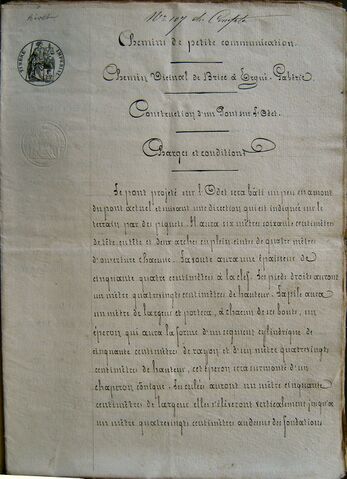 N° 107 du Compte
Chemins de petite communication.
Chemin Vicinal de Briec à Ergué-Gabéric
Construction d'un Pont sur l'Odet.
Charges et conditions
Le pont projeté sur l'Odet sera bâti un peu en amont
du pont actuel et suivant une direction qui est indiquée sur le
terrain par des piquets. Il aura six mètres soixante centimètres
de tête en tête et deux arches en plein cintre de quatre mètres
d'ouverture chacune. La voute aura une épaisseur de
cinquante quatre centimètres à la clef. Les pieds droits auront
un mètre quatrevingts centimètres de hauteur. La pile aura
un mètre de largeur et portera, à chacun de ses bouts, un
éperon qui aura la forme d'un segment cylindrique de
cinquante centimètres de rayon et d'un mètre quatrevingts
centimètres de hauteur, cet éperon sera surmonté d'un
chaperon conique. Les culées auront un mètre cinquante
centimètres de largeur elles s'éleveront verticalement jusqu'à
un mètre quatrevingts centimètres audessus des fondations